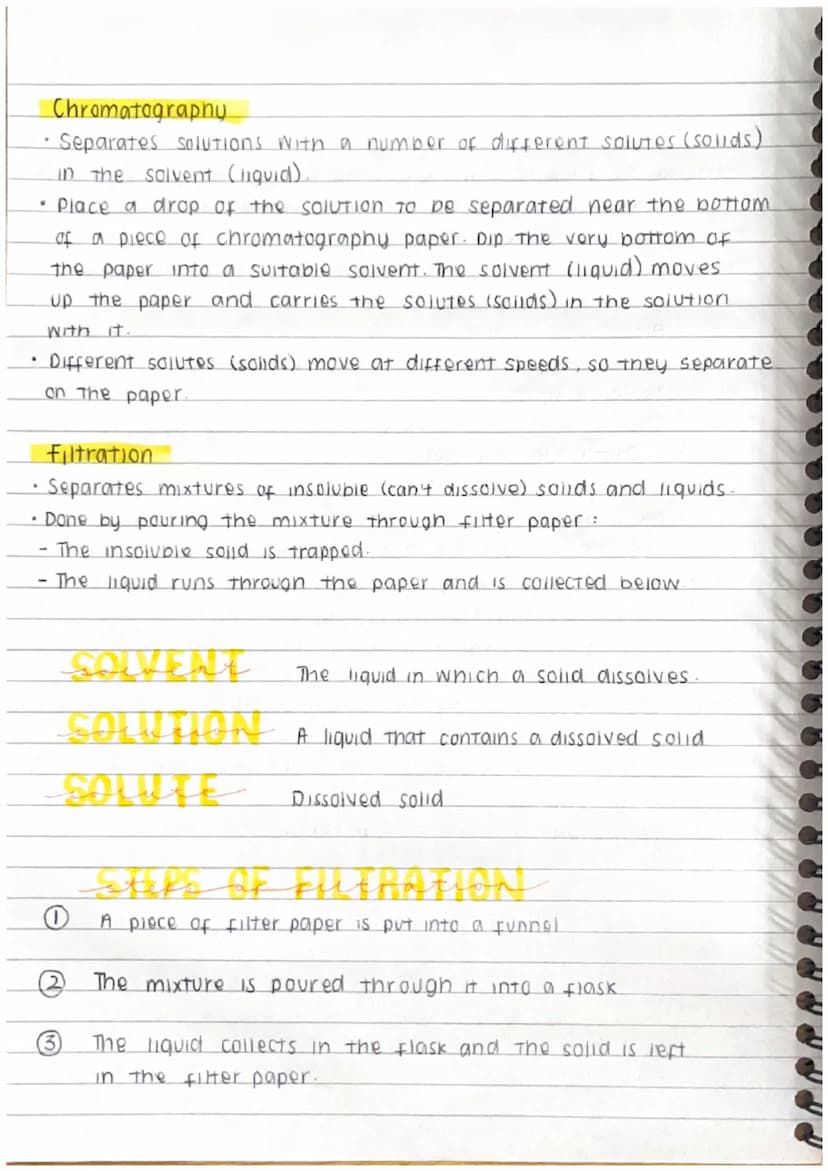 Chromatography
· Separates solutions with a number of different solutes (solids)
in the solvent (liquid).
· Place a drop of the solution to be separated near the bottom
of a piece of chromatography paper. Dip the very bottom of
the paper into a suitable solvent. The solvent (liquid) moves
up the paper and carries the solutes (solids) in the solution
with it.
· Different solutes (solids) move at different speeds, so they separate
on the paper.
Filtration
· Separates mixtures of insoluble (can't dissolve) solids and liquids.
· Done by pouring the mixture through filter paper :
- The insoluble solid is trapped.
- The liquid runs through the paper and is collected below
SOLVENT solvent The liquid in which a solid dissolves.
SOLUTION solution A liquid that contains a dissolved solid
SOLUTE solute Dissolved solid
STEPS OF FILTRATION steps of filtration
① A piece of filter paper is put into a funnel
② The mixture is poured through it into a flask
③ The liquid collects in the flask and the solid is left
in the filter paper.